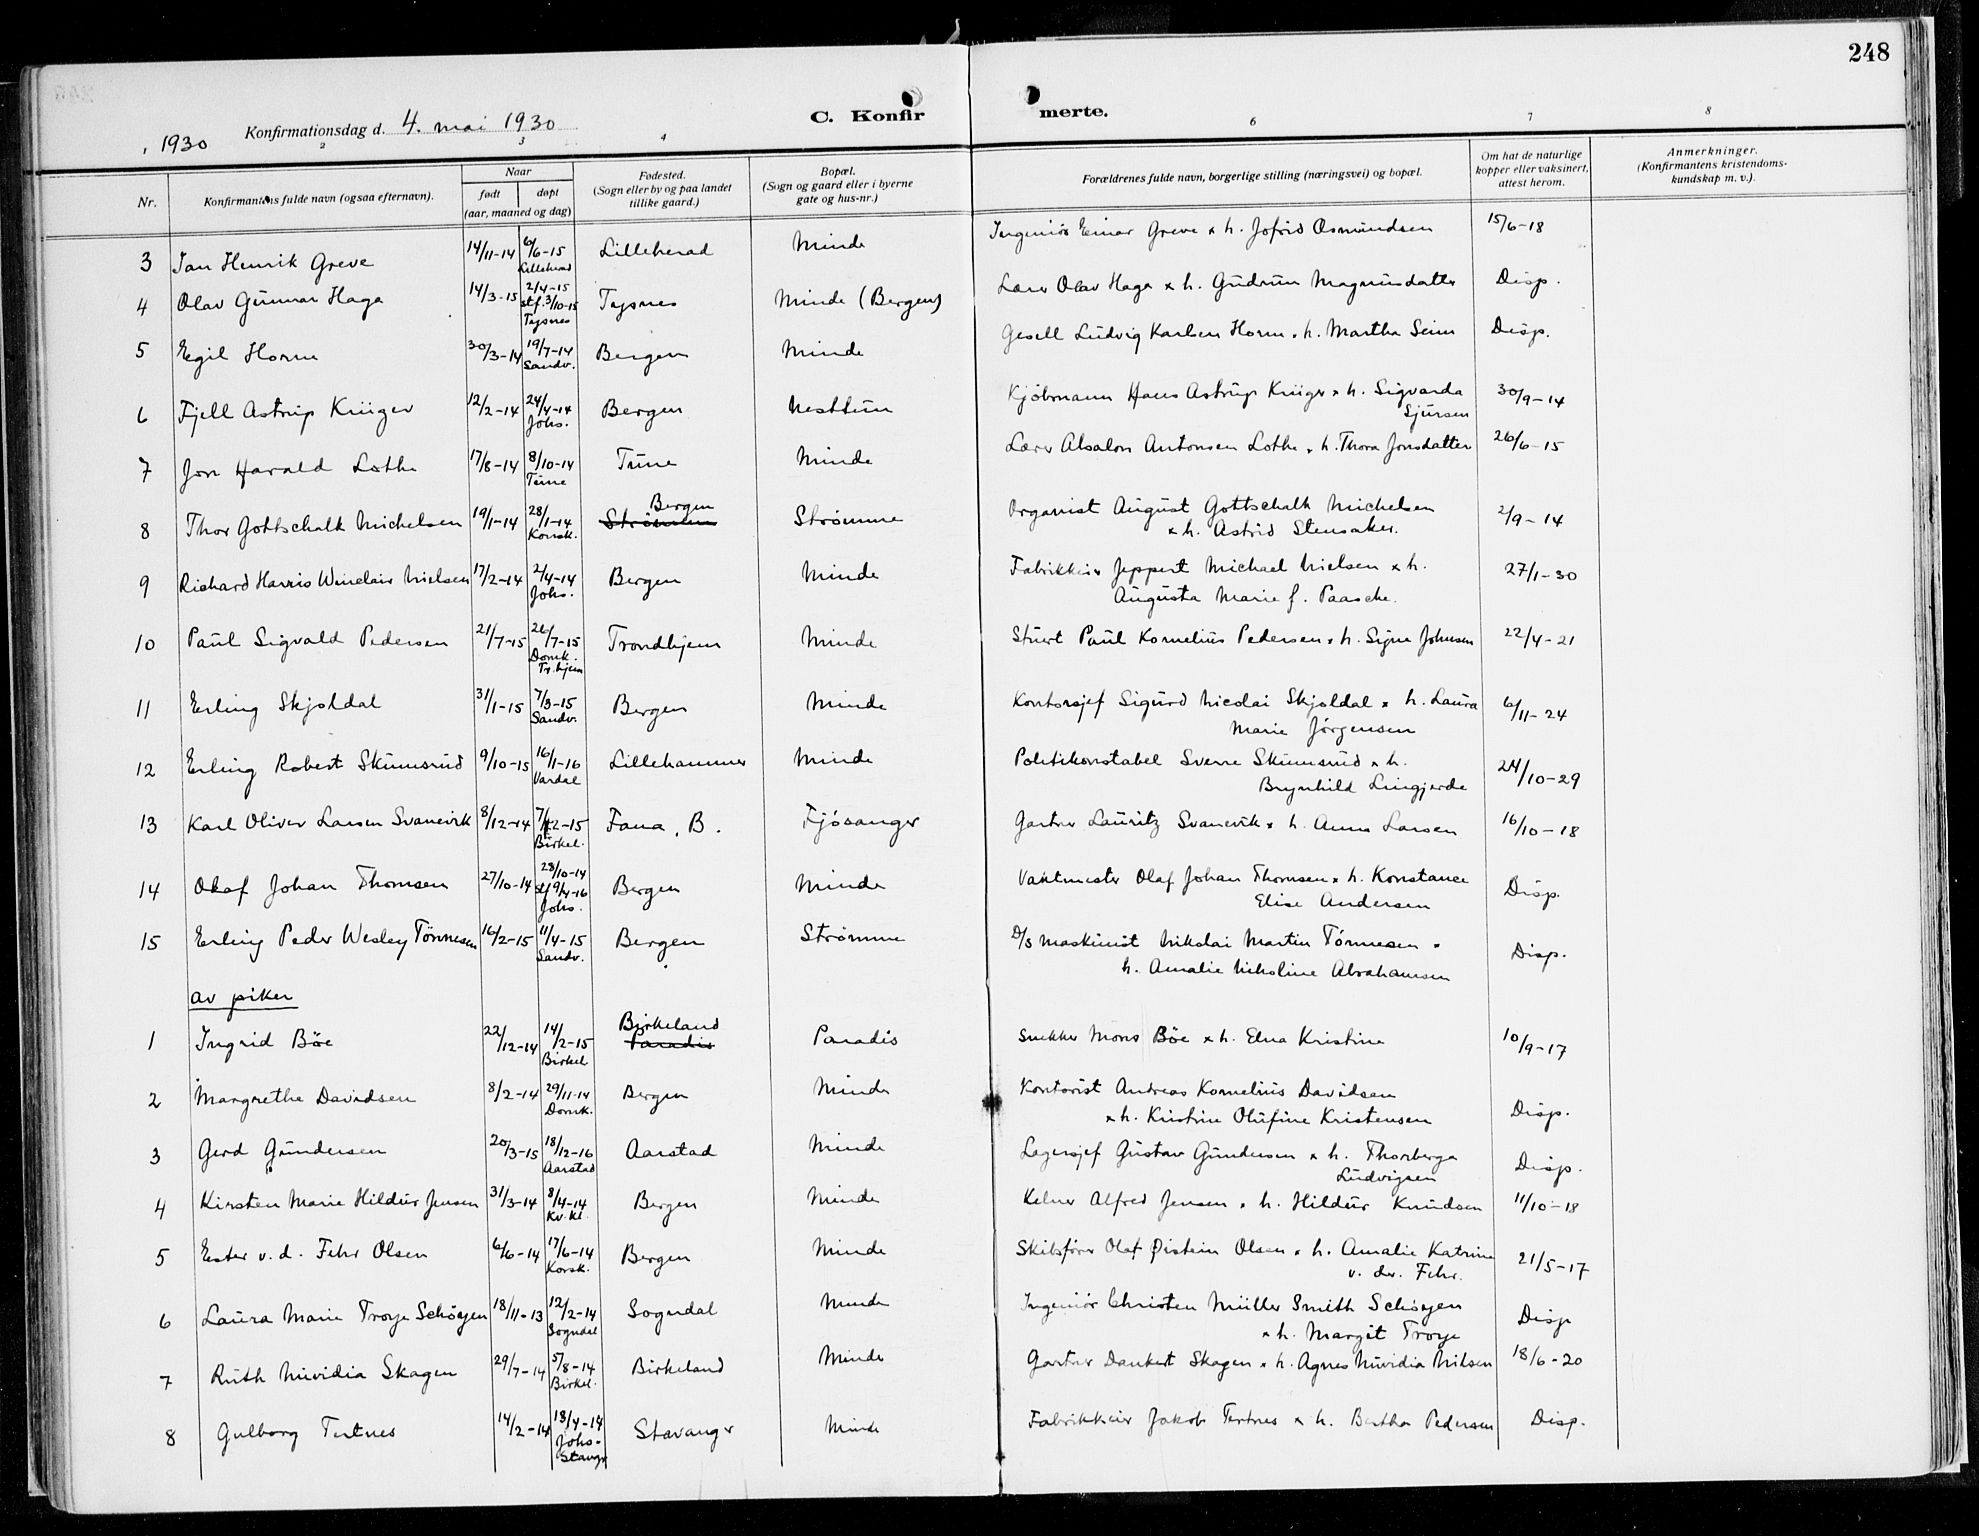 248
C. Konfirmerte.
, 1930 Konfirmationsdag d. 4. mai 1930
2 3 4 6 7 8
Nr. Konfirmantens fulde navn (ogsaa efternavn). Naar født døpt (aar, maaned og dag) Fødested. (Sogn eller by og paa landet tillike gaard.) Bopæl. (Sogn og gaard eller i byerne gate og hus-nr.) Forældrenes fulde navn, borgerlige stilling (næringsvei) og bopæl. Om hat de naturlige kopper eller vaksinert, attest herom. Anmerkninger. (Konfirmantens kristendomskundskap m. v.).
3 Jan Henrik Greve 14/11-14 6/6-15 Lilleherad Lilleherad Minde Ingeniør Einar Greve x h. Jofrid Osmundsen 15/6-18
4 Olav Gunnar Haga 14/3-15 2/4-15 stf. 3/10-15 Tysnes Tysnes Minde (Bergen) Lærer Olav Haga x h. Gudrun Magnusdatter Disp.
5 Egil Horne 30/3-14 19/7-14 Sandv. Bergen Minde Gesell Ludvig Karlsen Horne x h. Martha Seim Disp.
6 Fjell Astrup Krüger 12/2-14 24/4-14 Johs. Bergen Nesttun Kjøbmann Hans Astrup Krüger x h. Sigvarda Sjursen 30/9-14
7 Jon Harald Lothe 17/8-14 8/10-14 Tune Tune Minde Lærer Absalon Antonsen Lothe x h. Thora Jonsdatter 26/6-15
8 Thor Gottschalk Michelsen 19/1-14 28/1-14 Korsk. Bergen Strømme Organist August Gottschalk Michelsen
x h. Astrid Stensaker. 2/9-14
9 Richard Harris Winclair Nielsen 17/2-14 2/4-14 Johs. Bergen Minde Fabrikkeier Jeppert Michael Nielsen x h.
Augusta Marie f. Paasche. 27/1-30
10 Paul Sigvald Pedersen 21/7-15 26/7-15 Domk. Tr.hjem Trondhjem Minde Stuert Paul Kornelius Pedersen x h. Signe Johnsen 22/4-21
11 Erling Skjoldal 31/1-15 7/3-15 Sandv. Bergen Minde Kontorsjef Sigurd Nicolai Skjoldal x h. Laura
Marie Jørgensen 6/11-24
12 Erling Robert Skumsrud 9/10-15 16/1-16 Vardal Lillehammer Minde Politikonstabel Sverre Skumsrud x h.
Brynhild Lingjerde 24/10-29
13 Karl Oliver Larsen Svanevik 8/12-14 7/2-15 Birkel. Fana, B. Fjøsanger Gartner Lauritz Svanevik x h. Anna Larsen 16/10-18
14 Olaf Johan Thomsen 27/10-14 28/10-14 stf 9/4-16 Johs. Bergen Minde Vaktmester Olaf Johan Thomsen x h. Konstance
Elise Andersen Disp.
15 Erling Peder Wesley Tönnesen 16/2-15 11/4-15 Sandv. Bergen Strømme D/S Maskinist Nikolai Martin Tönnesen x
h. Amalie Nikoline Abrahamsen Disp.
av piker
1 Ingrid Böe 22/12-14 14/2-15 Birkel Birkeland Paradis Paradis Snekker Mons Böe x h. Elna Kristine 10/9-17
2 Margrethe Davidsen 8/2-14 29/11-14 Domk. Bergen Minde Kontorist Andreas Kornelius Davidsen
x h. Kristine Olufine Kristensen Disp.
3 Gerd Gundersen 20/3-15 18/12-16 Aarstad Aarstad Minde Lagersjef Gustav Gundersen x h. Thorberga
Ludvigsen Disp.
4 Kirsten Marie Hildur Jensen 31/3-14 8/4-14 Kv. Kl. Bergen Minde Kelner Alfred Jensen x h. Hildur Knudsen 11/10-18
5 Ester v. d. Fehr Olsen 6/6-14 17/6-14 Korsk. Bergen Minde Skibsfører Olaf Øistein Olsen x h. Amalie Katrine
v. der. Fehr. 21/5-17
6 Laura Marie Troye Schöyen 18/11-13 12/2-14 Sogndal Sogndal Minde Ingeniör Christen Müller Smith Schöyen
x h. Margit Troye Disp
7 Ruth Nuvidia Skagen 29/7-14 5/8-14 Birkel. Birkeland Minde Gartner Dankert Skagen x h. Agnes Nuvidia Nilsen 18/6-20
8 Gulborg Tertnes 14/2-14 13/4-14 Johs- Stavgr Stavanger Minde Fabrikkeier Jakob Tertnes x h. Bertha Pedersen Disp.